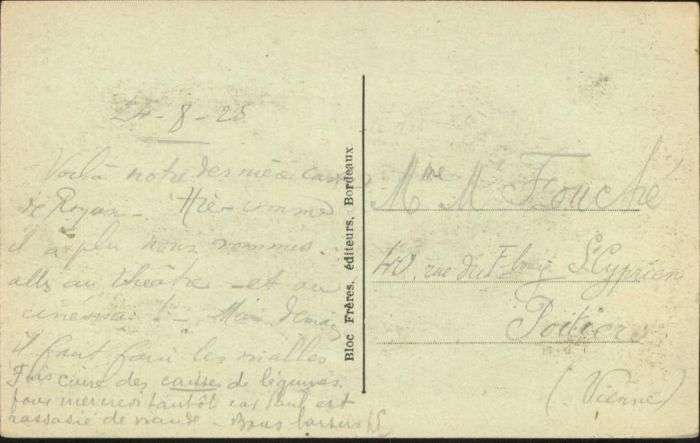 24-8-25
Voilà notre dernière carte
de Royan. Hier comme
il a plu nous sommes
allés au théatre et au
cinéma. Mais demain
Il faut faire les malles
Fais cuire des cosses de légumes
pour mercredi tantôt car Paul est
rassasié de viande. Bons baisers
Bloc Frères, éditeurs, Bordeaux
Mme M Fouché
40, rue du Fbourg St Cyprien
Poitiers
(Vienne)